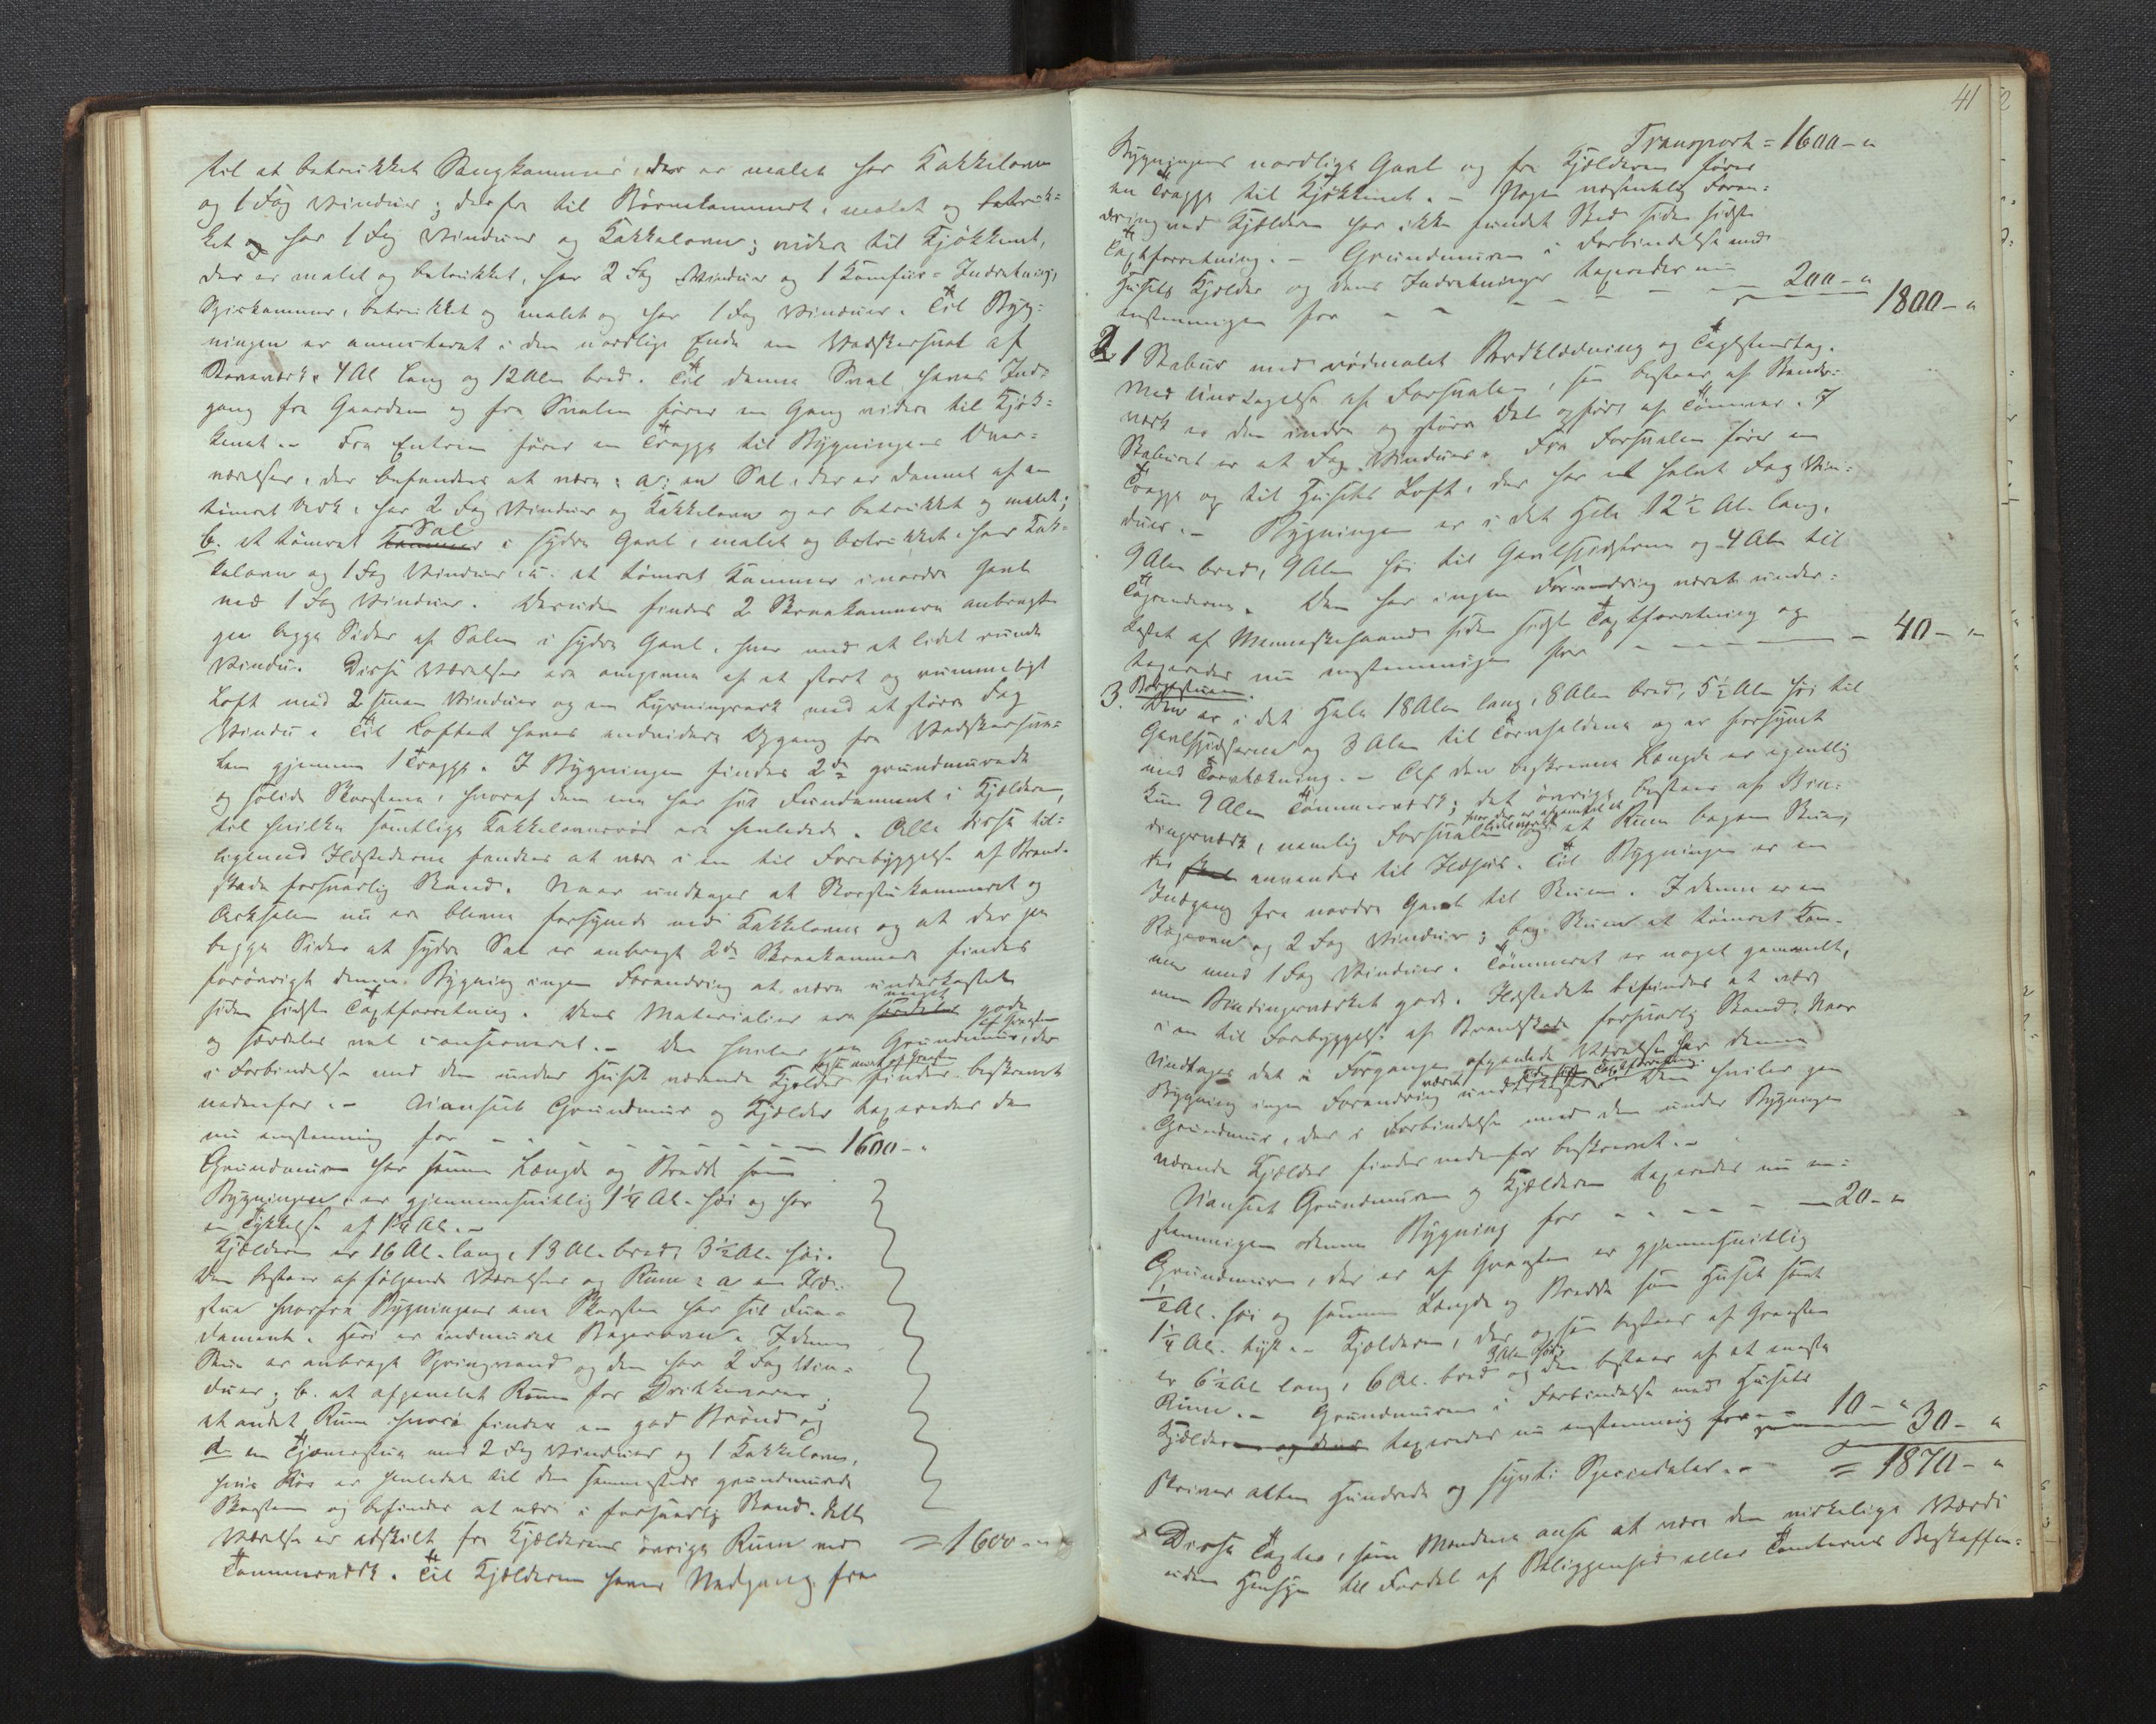 til et betrukket Sengkammer, der er malet har Kakkelovn
og 1 Fag Vinduer; derfra til Børnekammeret, malet og betruk-
ket og har 1 Fag Vinduer og Kakkelovn; videre til Kjøkkenet,
der er malet og betrukket, har 2 Fag Vinduer og 1 Komfur-Indretning,
Spiskammer, betrukket og malet og har 1 Fag Vinduer. Til Byg-
ningen er anmuret i den nordlige Ende en Vadskersval af
4 Al. lang og 12 Alen bred. Til denne Sval haves Ind-
gang fra Gaarden og fra Svalen fører en Gang videre til Kjøk-
kenet. - Fra Entreen fører en Trappe til Bygningens Over-
værelser, der befandtes at være: a: en Sal, der er dannet af en
tømret Ark, har 2 Fag Vinduer og Kakkelovn og er betrukket og malet;
b. et tømret Kammer Sal i syndre Gavl, malet og betrukket, har Kak-
kelovn og 1 Fag Vinduer, c. et tømret Kammer i nordre Gavl
med 1 Fag Vinduer. Desuden findes 2 Skraakammere anbragte
paa begge Sider af Salen i syndre Gavl, hver med et lidet rundt
Vindu. Disse Værelser ere omgivne af et stort og rummeligt
Loft med 2 smaa Vinduer og en Lysningsark med et større Fag
Vindu. Til Loftet haves endvidere Opgang fra Vadskersva-
len gjennem 1 Trappe. I Bygningen findes 2de grundmurede
og solide Skorstene, hvoraf den ene har sit Fundament i Kjælderen,
til hvilke samtlige Kakkelovnsrør ere henledede. Alle disse til-
ligemed Ildstederne fandtes at være i en til Forebyggelse af Brand-
skade forsvarlig Stand. Naar undtages at Skorstuekammeret og
Arksalen nu ere blevne forsynede med Kakkelovne og at der paa
begge Sider af syndre Sal er anbragt 2de Skraakammere findes
forøvrigt denne Bygning ingen Forandring at være underkastet
siden sidste Taxtforretning. Dens Materialier ere særdeles meget gode
og særdeles vel conserverede. - Den hviler paa Grundmuur, af Graasten der
i Forbindelse med den under Huset værende Kjælder findes beskrevet
nedenfor. - Uanseet Grundmuur og Kjælder taxeredes den
nu enstemmig for - - - - - 1600 - "
Grundmuren har samme Længde og Bredde som
Bygningen, er gjennemsnitlig 1 1/4 Al. høi og har
en Tykkelse af 1 1/4 Al. -
Kjælderen er 16 Al. lang, 13 Al. bred, 3 1/2 Al. høi.
Den bestaaer af følgende Værelser og Rum: a en Ild-
stue hvorfra Bygningens ene Skorsten har sit Fun-
dament. Heri er indmuret Bagerovn. I denne
Stue er anbragt Springvand og den har 2 Fag Vin-
duer; b. et afpanelet Rum for Drikkevarer;
et andet Rum hvori findes en god Brønd og
d. en Tjenerstue med 2 Fag Vinduer og 1 Kakkelovn,
hvis Rør er henledet til den sammesteds grundmurede
Skorsten og befindes at være i forsvarlig Stand. Dette
Værelse er adskilt fra Kjælderens øvrige Rum ved
Tømmerværk. Til Kjælderen haves Nedgang fra
= 1600 - "
41
Transport = 1600 - "
Bygningens nordlige Gavl og fra Kjælderen fører
en Trappe til Kjøkkenet. - Nogen væsentlig Foran-
dring ved Kjælderen har ikke fundet Sted siden sidste
Taxtforretning. - Grundmuren i Forbindelse med
Husets Kjælder og dens Indretninger taxeredes nu
enstemmigen for - - - - - 200 - "
1800 - "
2. 1 Stabur med rødmalet Bordklædning og Taglstenstag.
Med Undtagelse af Forsvalen, som bestaaer af Stender-
værk er den indre og større Del opført af Tømmer. I
Staburet er et Fag Vinduer. Fra Forsvalen fører en
Trappe op til Husets Loft, der har et halvt Fag Vin-
duer. - Bygningen er i det Hele 12 1/2 Al. lang,
9 Alen bred, 9 Alen høi til Gavlspidserne og 4 Alen til
Tagrenderne. Den har ingen Forandring været under-
kastet af Menneskehaand siden sidste Taxtforretning og
taxeredes nu enstemmigen for - - - - 40 - "
3. Borgestuen.
Den er i det Hele 18 Alen lang, 8 Alen bred, 5 1/2 Alen høi til
Gavlspidserne og 3 Alen til Torvholdene og er forsynet
med Torvtækning. - Af den beskrevne Længde er egentlig
kun 9 Alen Tømmerværk; det øvrige bestaaer af Bin-
dingsværk, nemlig Forsvalen og et Rum bagom Stuen,
der anvendes til Ildhus. Til Bygningen er en
Indgang fra nordre Gavl til Stuen. I denne er en
Bagerovn og 2 Fag Vinduer; bag Stuen et tømret Kam-
mer med 1 Fag Vinduer. Tømmeret er noget gammelt,
men Bindingsværket godt. Ildstedet befindes at være
i en til Forbyggelse af Brandskade forsvarlig Stand. Naar
undtages det i Forgangen afpanelede Værelse har denne
Bygning ingen Forandring været underkastet siden sidste Taxtforretning. Den hviler paa
Grundmuur, der i Forbindelse med den under Bygningen
værende Kjælder findes nedenfor beskrevet. -
Uanseet Grundmuren og Kjælderen taxeredes nu en-
stemmigen denne Bygning for - - - - 20 - "
Grundmuren, der er af Graasten er gjennemsnitlig
1/2 Al. høi og samme Længde og Bredde som Huset samt
1 1/4 Al. tyk. - Kjælderen, der ogsaa bestaaer af Graasten
er 6 1/2 Al. lang, 6 Al. bred 3 Alen høi og den bestaaer af et eneste
Rum. - Grundmuren i Forbindelse med Husets
Kjælder og dens taxeredes nu enstemmig for - - 10 - "
30 - "
Skriver atten Hundrede og sytti Speciedaler. - = 1870 - "
Disse Taxter, som Mændene ansee at være den virkelige Værdi
uden Hensyn til Fordel af Beliggenhed eller Tomternes Beskaffen-